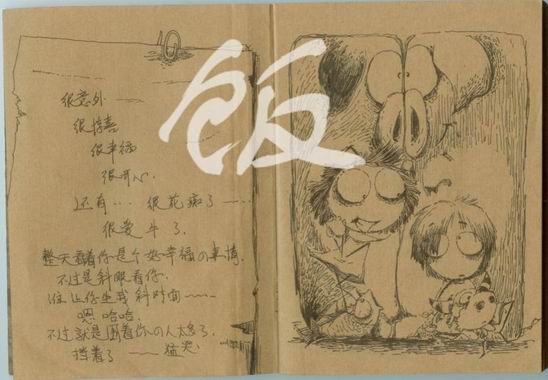 10
饭
很意外 ——
很惊喜
很幸福
很开心.
还有… 很花痴了 —…
很爱牛了.
整天看着你是个好幸福の事情.
不过是斜眼看你.
让你坐我斜对面 ～～
嗯. 哈哈.
不过就是围着你の人太多了.
挡着了 —— 猛哭